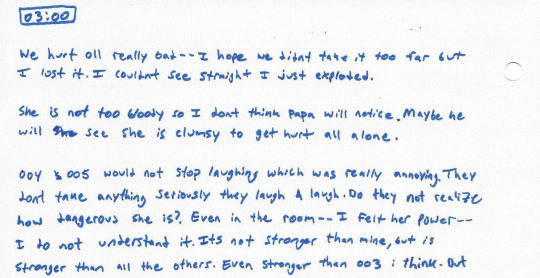 03:00
We hurt 011 really bad--I hope we didnt take it too far but
I lost it. I couldnt see straight I just exploded.
She is not too bloody so I dont think Papa will notice. Maybe he
will see she is clumsy to get hurt all alone.
004 & 005 would not stop laughing which was really annoying. They
dont take anything seriously they laugh & laugh. Do they not realize
how dangerous she is?. Even in the room--I felt her power--
I do not understand it. Its not stronger than mine, but is
stronger than all the others. Even stronger than 003 i think. But